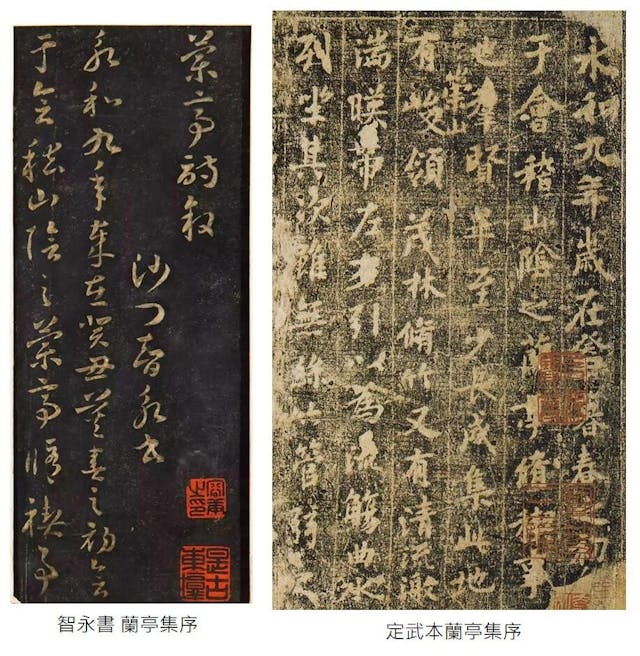 蘭亭詩叙
沙門智永書
永和九年歲在癸丑暮春之初會
于會稽山陰之蘭亭脩禊事
永和九年歲在癸丑暮春之初
于會稽山陰之蘭亭脩稧事
也羣賢畢至少長咸集此地
有崇山峻領茂林脩竹又有清流激
湍暎帶左右引以為流觴曲水
列坐其次雖無絲竹管弦之
智永書 蘭亭集序
定武本蘭亭集序